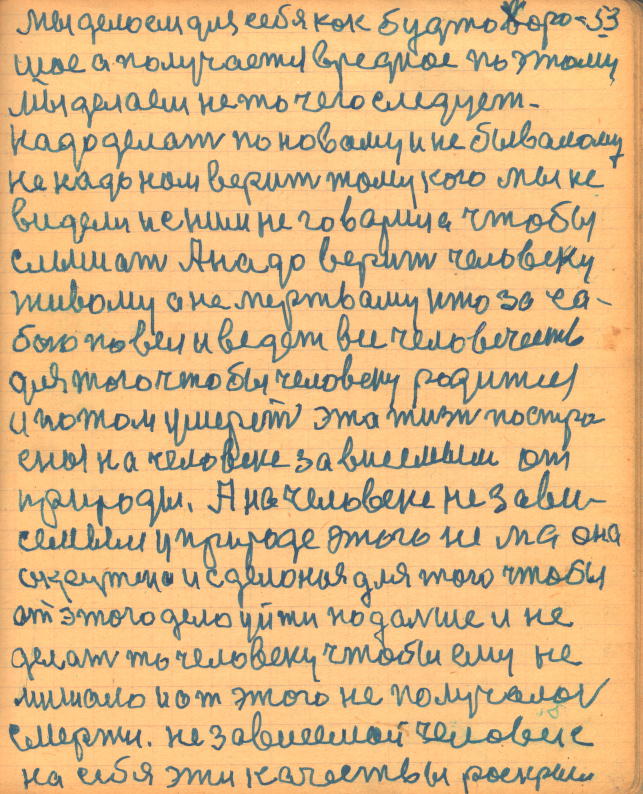 мы делоем для себя кок будто хоро- 53
шое а получается вредное поэтому
Мы делаем не то чего следует-
надо делат по новому и не бываламу
не надо ном верит тому кого мы не
видели и с ним не говарили чтобы
слышат А надо верит человеку
живому а не мертваму кто за са-
бою повел и ведет все человечеств
для того чтобы человеку родится
и потом умерет эта жизн постро
ена на человеке зависемым от
природы. А на человеке незави-
семым у природе этого не ма она
и сделоная для того чтобы
от этого дело уйти подалше и не
делат то человеку чтобы ему не
мишало и от этого не получалос
смерти. независемой человек
на себя эти качествы роскрыл